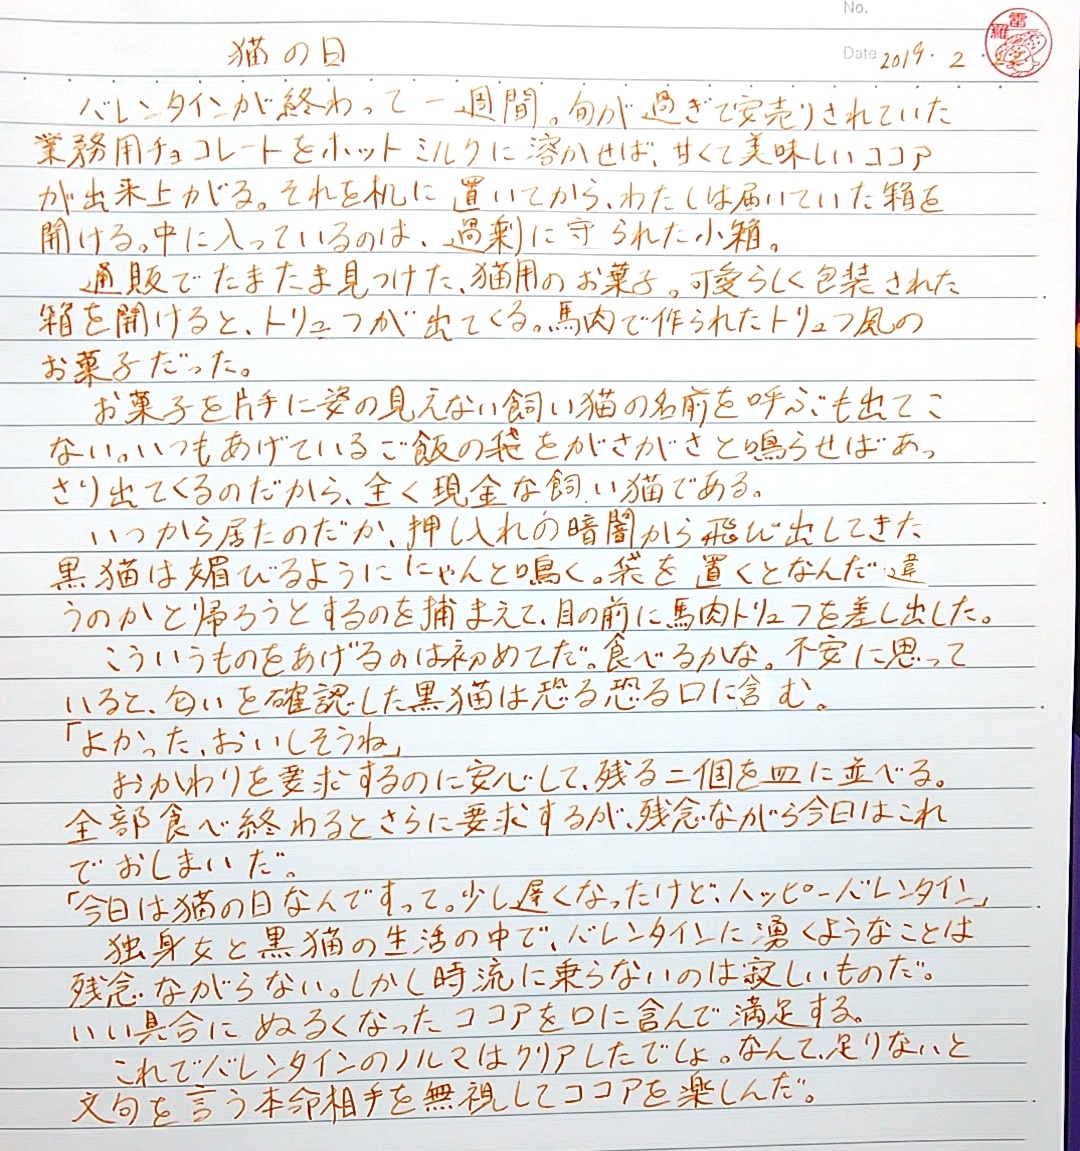 No.
猫の日
Date 2019・2・
雷羅
バレンタインが終わって一週間。旬が過ぎて安売りされていた
業務用チョコレートをホットミルクに溶かせば、甘くて美味しいココア
が出来上がる。それを机に置いてから、わたしは届いていた箱を
開ける。中に入っているのは、過剰に守られた小箱。
通販でたまたま見つけた、猫用のお菓子。可愛らしく包装された
箱を開けると、トリュフが出てくる。馬肉で作られたトリュフ風の
お菓子だった。
お菓子を片手に姿の見えない飼い猫の名前を呼ぶも出てこ
ない。いつもあげているご飯の袋をがさがさと鳴らせばあっ
さり出てくるのだから、全く現金な飼い猫である。
いつから居たのだか、押し入れの暗闇から飛び出してきた
黒猫は媚びるようににゃんと鳴く。袋を置くとなんだ違
うのかと帰ろうとするのを捕まえて、目の前に馬肉トリュフを差し出した。
こういうものをあげるのは初めてだ。食べるかな。不安に思って
いると、匂いを確認した黒猫は恐る恐る口に含む。
「よかった、おいしそうね」
おかわりを要求するのに安心して、残る二個を皿に並べる。
全部食べ終わるとさらに要求するが、残念ながら今日はこれ
でおしまいだ。
「今日は猫の日なんですって。少し遅くなったけど、ハッピーバレンタイン」
独身女と黒猫の生活の中で、バレンタインに湧くようなことは
残念ながらない。しかし時流に乗らないのは寂しいものだ。
いい具合にぬるくなったココアを口に含んで満足する。
これでバレンタインのノルマはクリアしたでしょ。なんて、足りないと
文句を言う本命相手を無視してココアを楽しんだ。